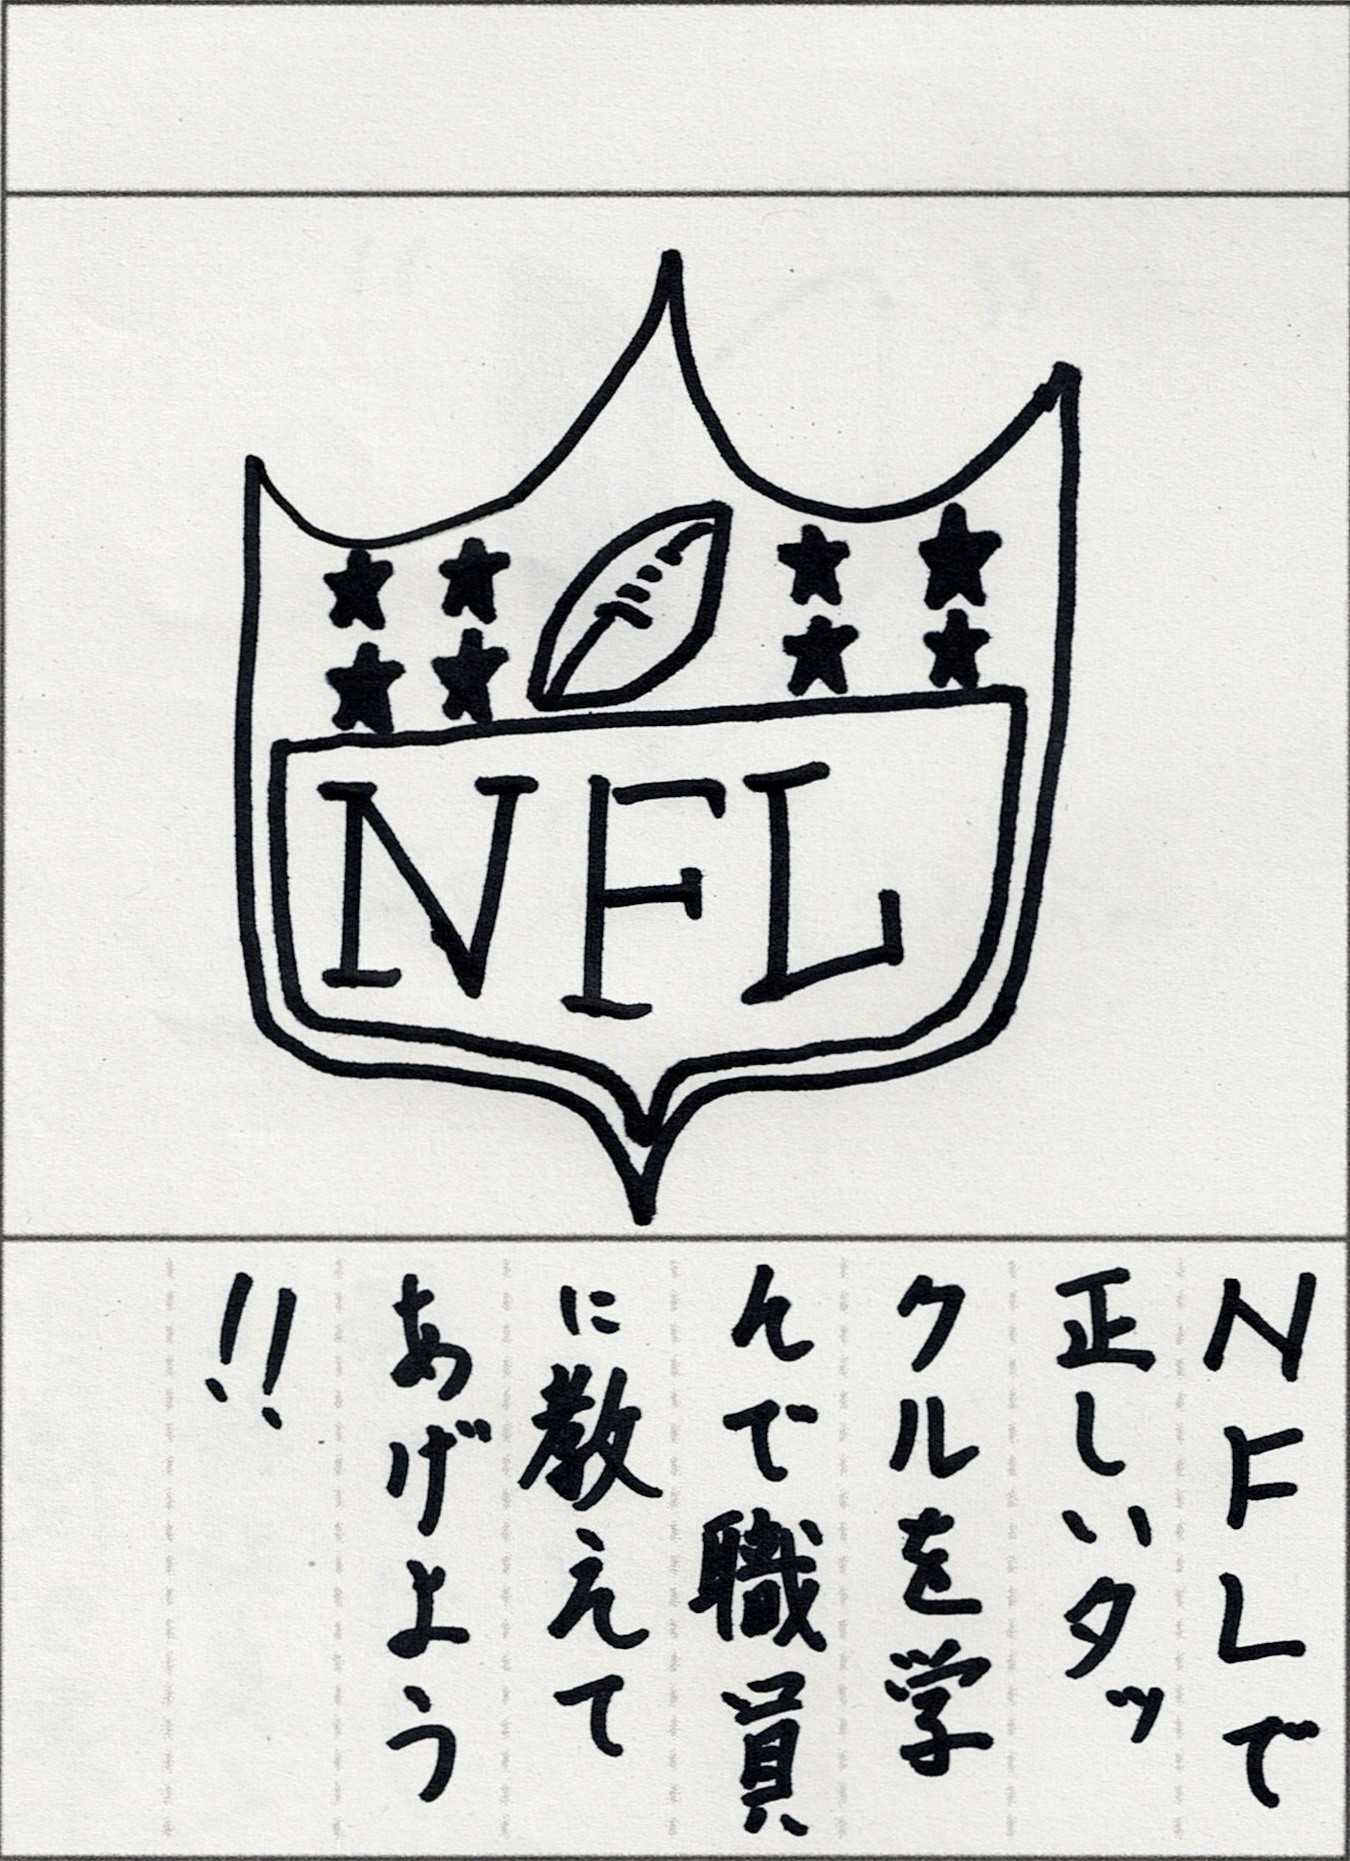 NFL
NFLで
正しいタッ
クルを学
んで職員
に教えて
あげよう
!!